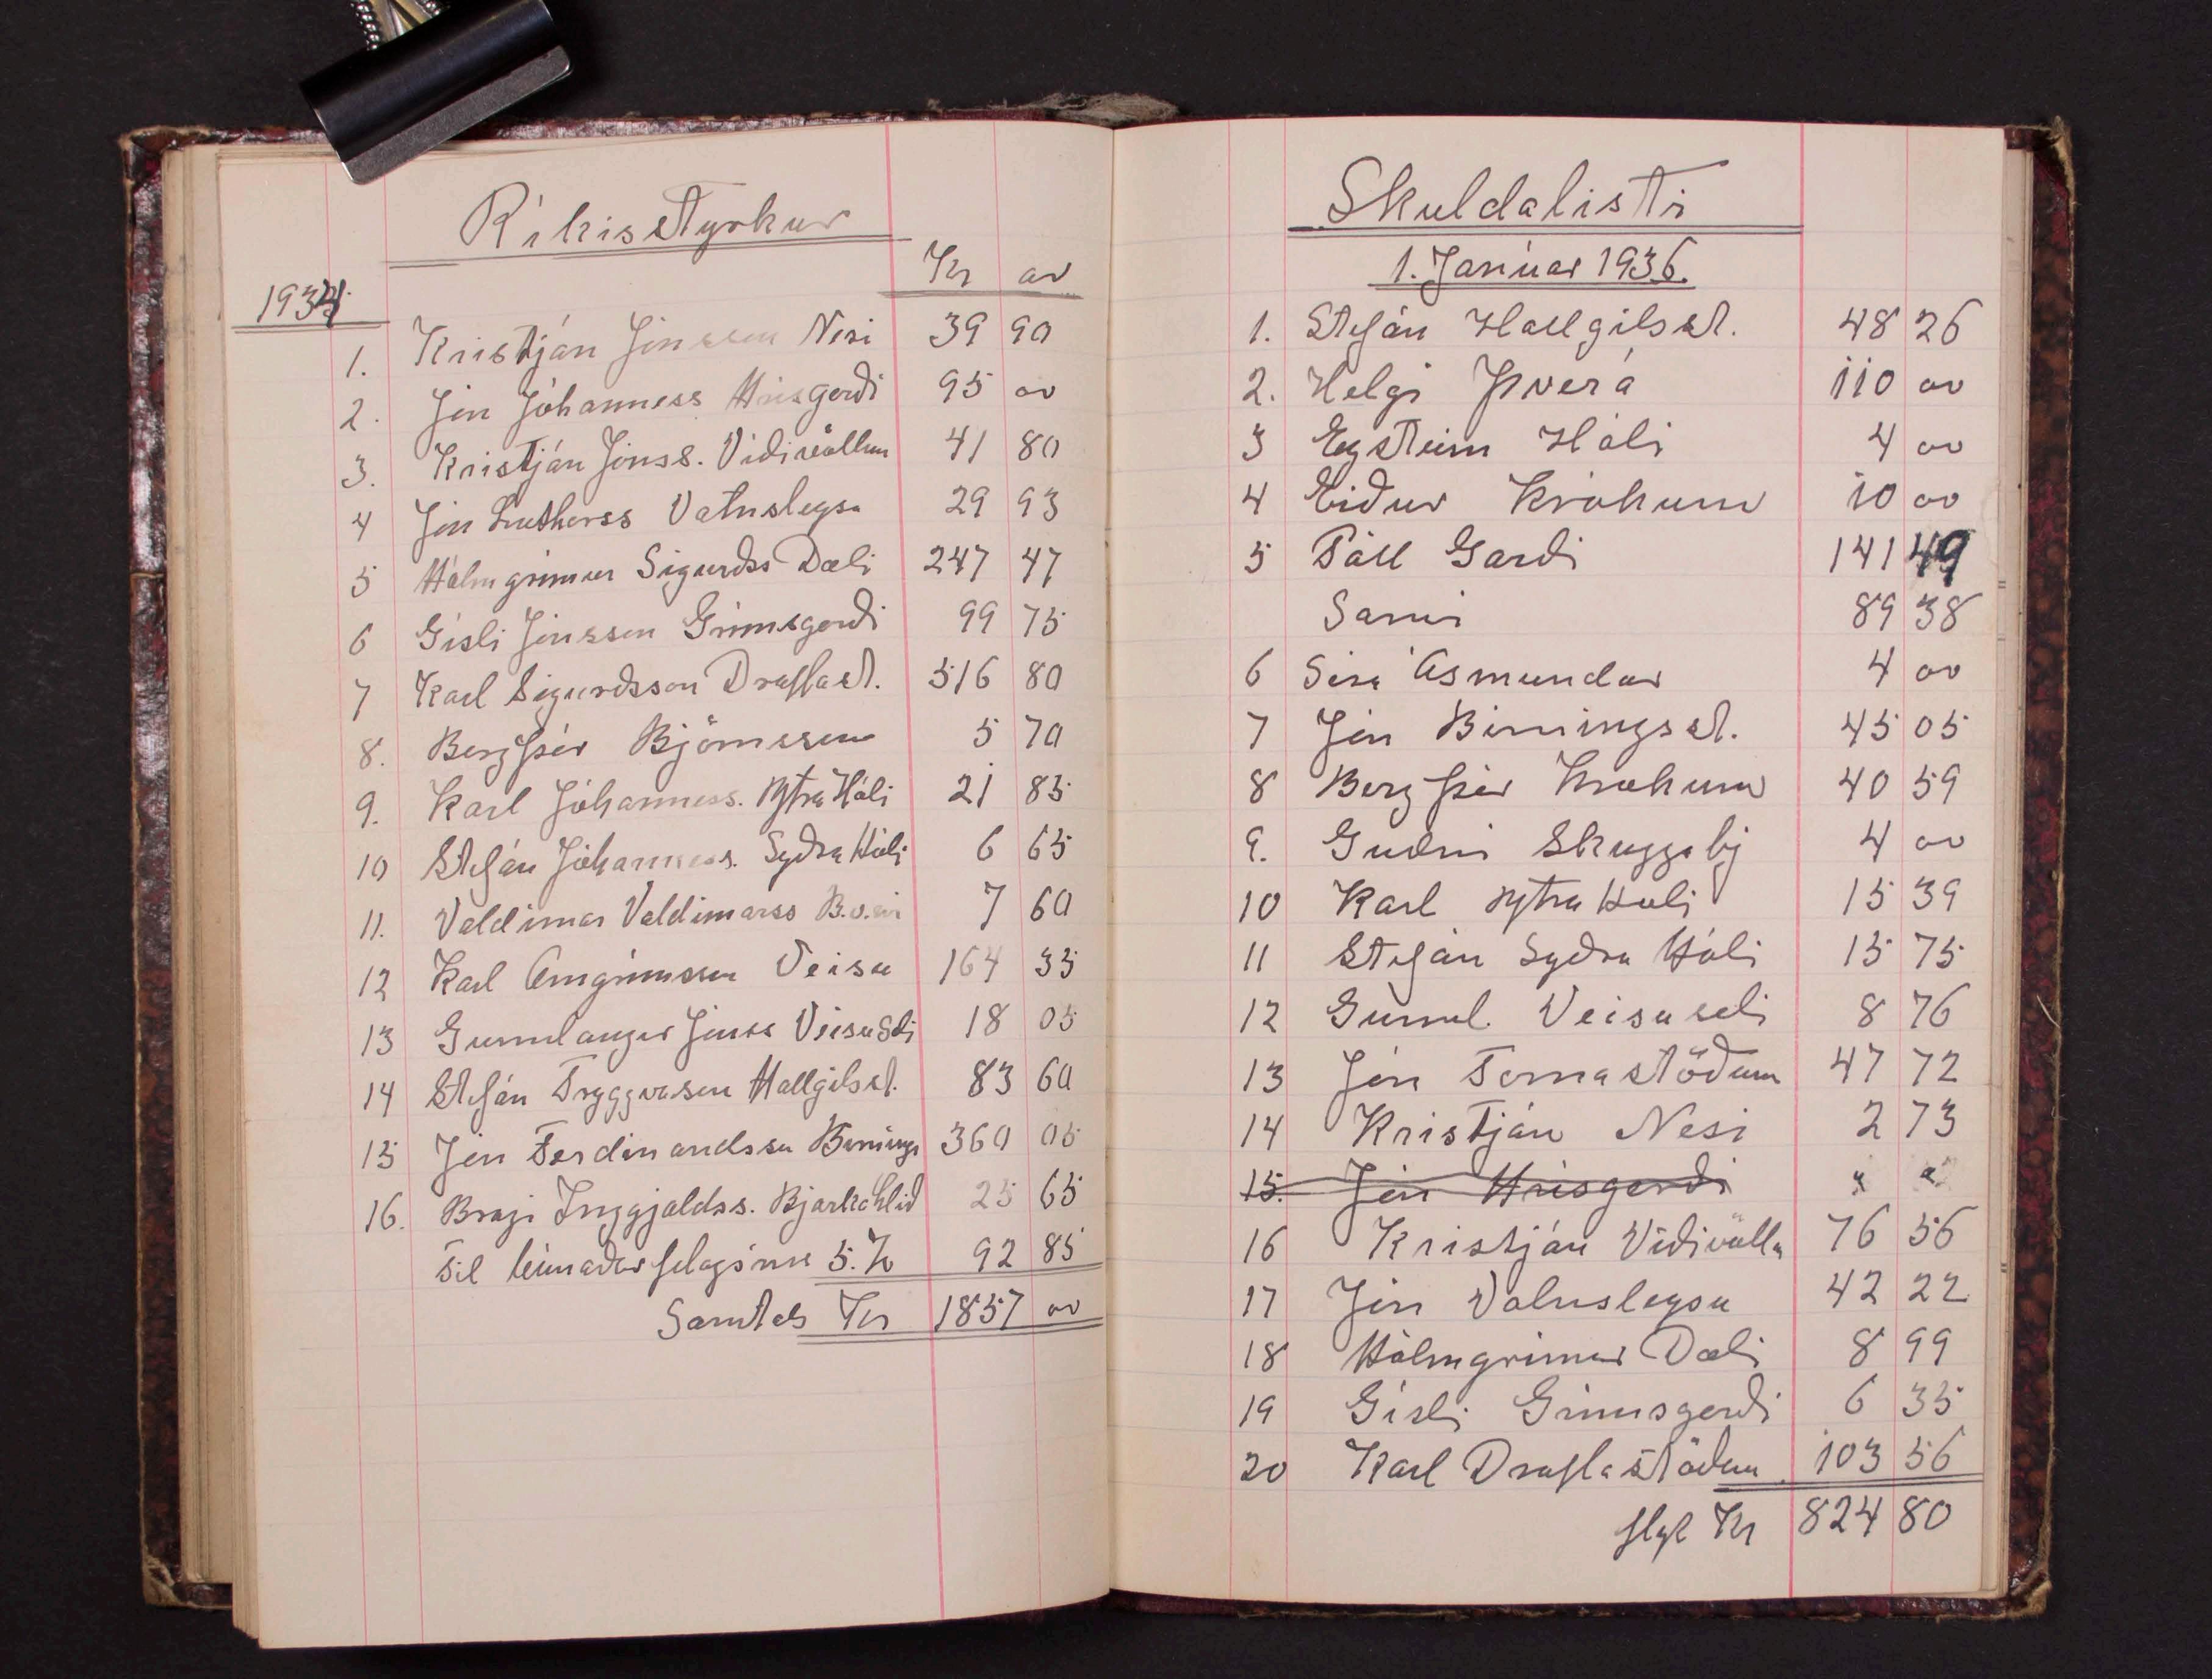 Ríkisstyrkur
Kr ao
1934
1. Kristján Jónsson Nesi 39 90
2. Jón Jóhanness Hrísgerði 95 oo
3. Kristján Jónss. Víðivöllum 41 80
4 Jón Lutherss Vatnsleysu 29 93
5 Hólmgrímur Sigurðss Dæli 247 47
6 Gísli Jónsson Grímsgerði 99 75
7 Karl Sigurðsson Draflast. 516 80
8. Bergþór Björnsson 5 70
9. Karl Jóhanness. Ytra Hóli 21 85
10 Stefán Jóhanness. Syðra Hóli 6 65
11. Valdimar Valdimarss 7 60
12 Karl Arngrímsson Veisu 164 35
13 Gunnlaugur Jónss Veisuseli 18 05
14 Stefán Tryggvason Hallgilsst. 83 60
15 Jón Ferdinandsson Birnings 360 05
16. Bragi Ingjaldss. Bjarkahlíð 25 65
Til búnaðarfélagsins 5. % 92 85
Samtals Kr 1857 oo
Skuldalisti
1. Janúar 1936.
1. Stefán Hallgilsst. 48 26
2. Helgi Þverá 110 oo
3 Eysteinn Hóli 4 oo
4 Eiður Krókum 10 oo
5 Páll Garði 141 49
Sami 89 38
6 Séra Ásmundur 4 oo
7 Jón Birningsst. 45 05
8 Bergþór Krókum 40 59
9. Guðni Skuggabj 4 oo
10 Karl Ytra Hóli 15 39
11 Stefán Syðra Hóli 15 75
12 Gunnl. Veisuseli 8 76
13 Jón Fornastöðum 47 72
14 Kristján Nesi 2 73
15. Jón Hrísgerði " "
16 Kristján Víðivöllu 76 56
17 Jón Vatnsleysu 42 22
18 Hólmgrímur Dæli 8 99
19 Gísli Grímsgerði 6 35
20 Karl Draflastöðum 103 56
flyt Kr 824 80